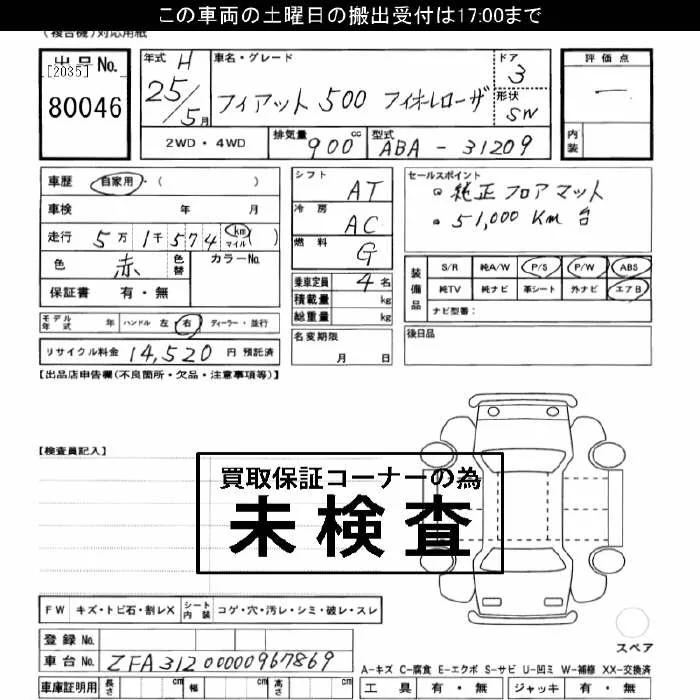 この車両の土曜日の搬出受付は17:00まで
(複合機)対応用紙
出品No. [2035] 80046
年式 H 25/5月
車名・グレード フィアット 500 フィオーレローザ
ドア 3
形状 SW
評価点 一
内装
2WD・4WD
排気量 900cc
型式 ABA-31209
車歴 自家用・( )
車検 年 月
走行 5万1千574 km マイル ( )
色 赤 色替 カラーNo.
保証書 有・無
シフト AT
冷房 AC
燃料 G
乗車定員 4名
積載量 kg
総重量 kg
セールスポイント
純正フロアマット
51,000 Km 台
装備品
S/R 純A/W P/S P/W ABS
純TV 純ナビ 革シート 外ナビ エアB
ナビ型番:
モデル年式 年 ハンドル 左 右 ディーラー・並行
リサイクル料金 14,520 円 預託済
名変期限 月 日
後日品
【出品店申告欄(不良箇所・欠品・注意事項等)】
【検査員記入】
買取保証コーナーの為
未検査
FW キズ・トビ石・割レX シート内装 コゲ・穴・汚レ・シミ・破レ・スレ
スペア
登録No.
車台No. ZFA31200000967869
A-キズ C-腐食 E-エクボ S-サビ U-凹ミ W-補修 XX-交換済
車庫証明用 長さ cm 幅 cm 高さ cm
工具 有・無 ジャッキ 有・無